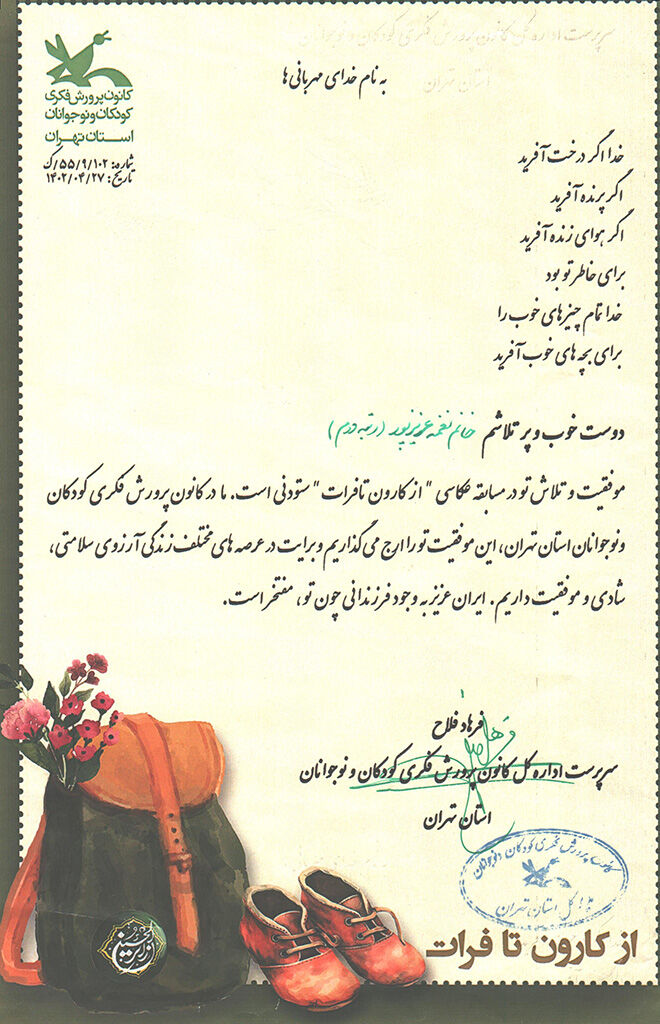 کانون پرورش فکری
کودکان و نوجوانان
استان تهران
شماره: ۵۵/۹/۱۰۲/ک
تاریخ: ۱۴۰۲/۰۴/۲۷
به نام خدای مهربانی ها
خدا اگر درخت آفرید
اگر پرنده آفرید
اگر هوای زنده آفرید
برای خاطر تو بود
خدا تمام چیزهای خوب را
برای بچه های خوب آفرید
دوست خوب و پر تلاشم خانم نغمه عزیزپور (رتبه دوم)
موفقیت و تلاش تو در مسابقه عکاسی "از کارون تا فرات" ستودنی است. ما در کانون پرورش فکری کودکان
و نوجوانان استان تهران، این موفقیت تو را ارج می گذاریم و برایت در عرصه های مختلف زندگی آرزوی سلامتی،
شادی و موفقیت داریم. ایران عزیز به وجود فرزندانی چون تو، مفتخر است.
فرهاد فلاح
سرپرست اداره کل کانون پرورش فکری کودکان و نوجوانان
استان تهران
کانون پرورش فکری کودکان و نوجوانان
اداره کل استان تهران
از کارون تا فرات